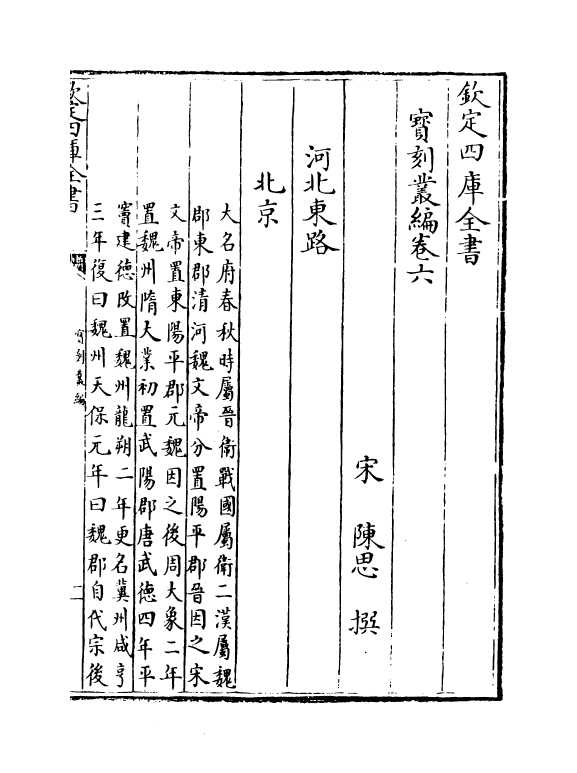 欽定四庫全書
寶刻叢編卷六
宋　陳思　撰
河北東路
北京
大名府春秋時屬晉衛戰國屬衛二漢屬魏
郡東郡清河魏文帝分置陽平郡晉因之宋
文帝置東陽平郡元魏因之後周大象二年
置魏州隋大業初置武陽郡唐武德四年平
竇建德改置魏州龍朔二年更名冀州咸亨
三年復曰魏州天保元年曰魏郡自代宗後
欽定四庫全書
寶刻叢編